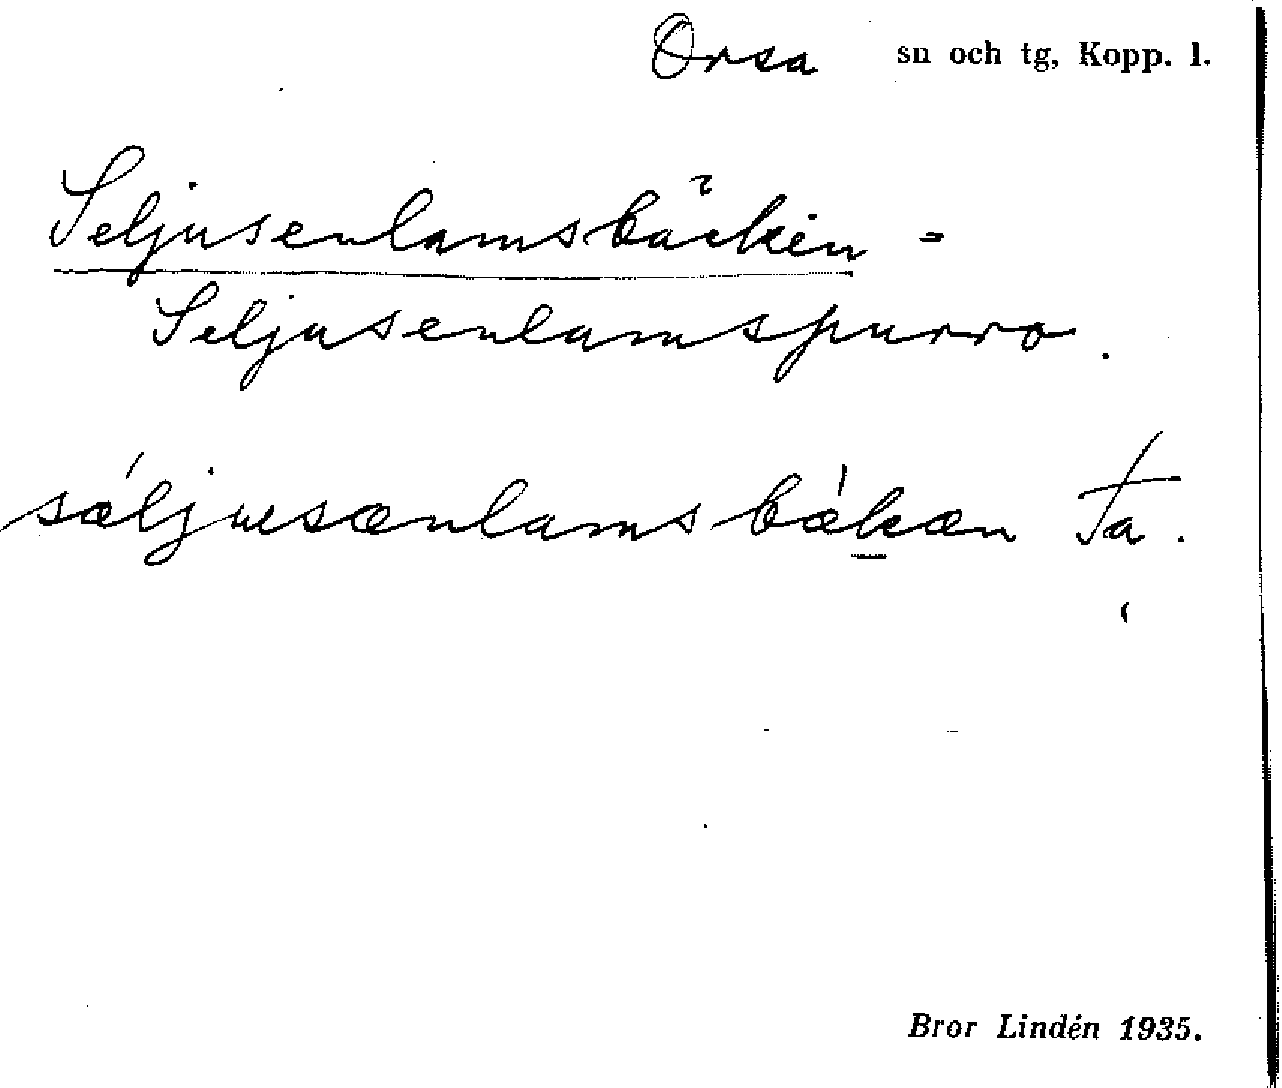 Orsa sn och tg, Kopp. l.
Seljusenlamsbäcken =
Seljusenlamspurro.
sǽljusænlamsbæ̀kæn Ta.
Bror Lindén 1935.